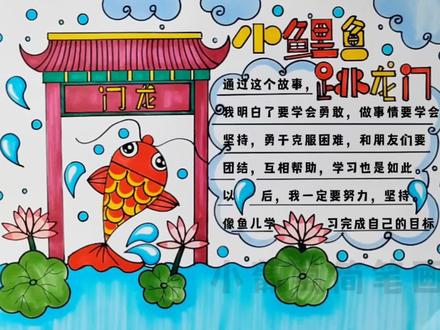 小鲤鱼
跳龙门
门龙
通过这个故事，
我明白了要学会勇敢，做事情要学会
坚持，勇于克服困难，和朋友们要
团结，互相帮助，学习也是如此。
以后，我一定要努力，坚持。
像鱼儿学习完成自己的目标